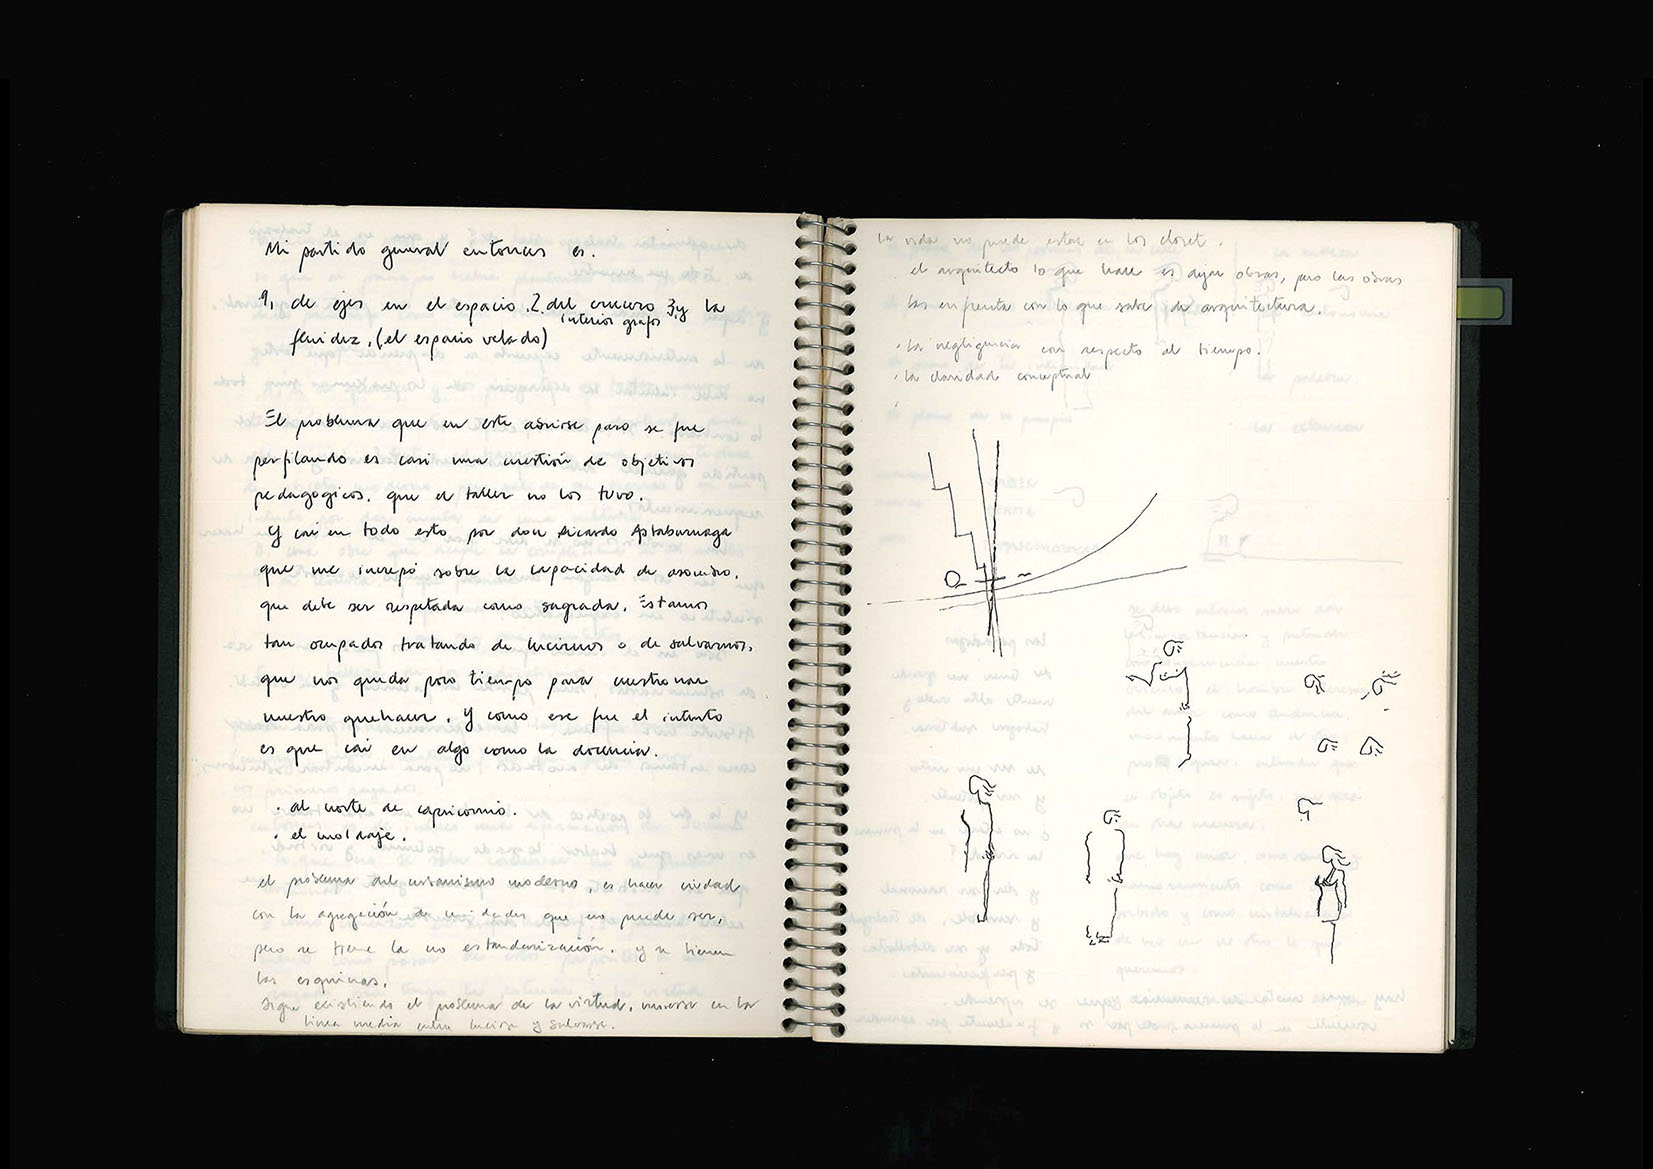 Mi partido general entonces es.
1, de ejes en el espacio. 2. del crucero 3, y la
interior grafo
fluidez, (el espacio velado)
El problema que en este abrirse paso se fue
perfilando es casi una cuestión de objetivos
pedagogicos. que el taller no los tuvo.
Y caí en todo esto por don Ricardo Astaburuaga
que me increpó sobre la capacidad de asombro.
que debe ser respetada como sagrada. Estamos
tan ocupados tratando de lucirnos o de salvarnos,
que nos queda poco tiempo para cuestionar
nuestro quehacer. Y como ese fue el intento
es que caí en algo como la docencia.
. al norte de capricornio.
. el moldaje.
el problema del urbanismo moderno, es hacer ciudad
con la agregación de unidades que no puede ser,
pero se tiene la no estandarización. y se tienen
las esquinas.
Sigue existiendo el problema de la virtud, moverse en la
linea media entre lucirse y salvarse.
La vida no puede estar en los closet.
el arquitecto lo que hace es dejar obras, pero las obras
las enfrenta con lo que sabe de arquitectura.
. La negligencia con respecto al tiempo.
. la claridad conceptual